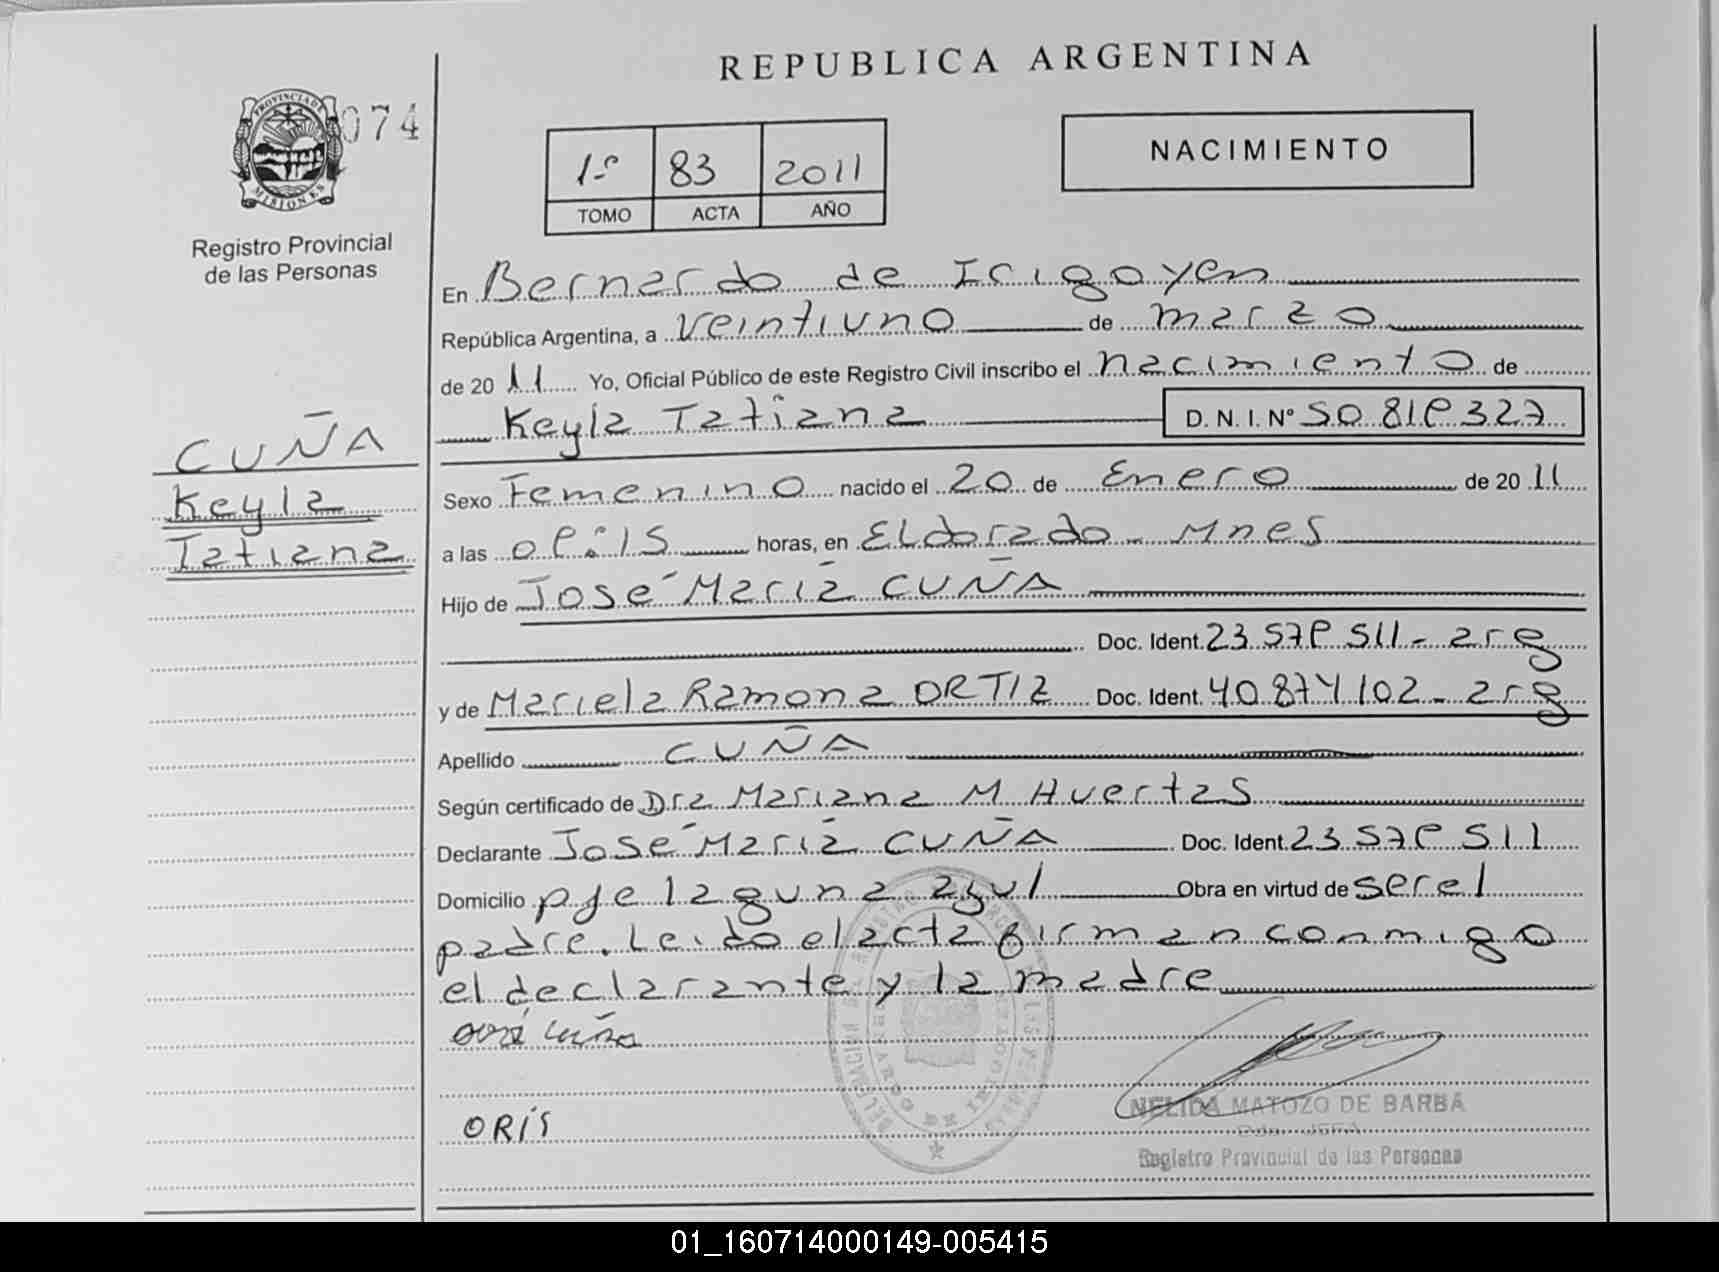 REPUBLICA ARGENTINA
PROVINCIA DE MISIONES
074
Registro Provincial
de las Personas
1º 83 2011
TOMO ACTA AÑO
NACIMIENTO
CUÑA
Keyla
Tatiana
En Bernardo de Irigoyen
República Argentina, a Veintiuno de marzo
de 2011 Yo, Oficial Público de este Registro Civil inscribo el nacimiento de
Keyla Tatiana D.N.I. Nº 50.819.327
Sexo Femenino nacido el 20 de Enero de 2011
a las 09:15 horas, en Eldorado - Mnes
Hijo de José María CUÑA
Doc. Ident. 23.579.511 - arg
y de Mariela Ramona ORTIZ Doc. Ident. 40.874.102 - arg
Apellido CUÑA
Según certificado de Dra Mariana M Huertas
Declarante José María CUÑA Doc. Ident. 23.579.511
Domicilio pje laguna azul Obra en virtud de ser el
padre. Leido el acta firman conmigo
el declarante y la madre
José Cuña
ORTÍS
NELIDA MATOZO DE BARBA
JEFA
Registro Provincial de las Personas
01_160714000149-005415